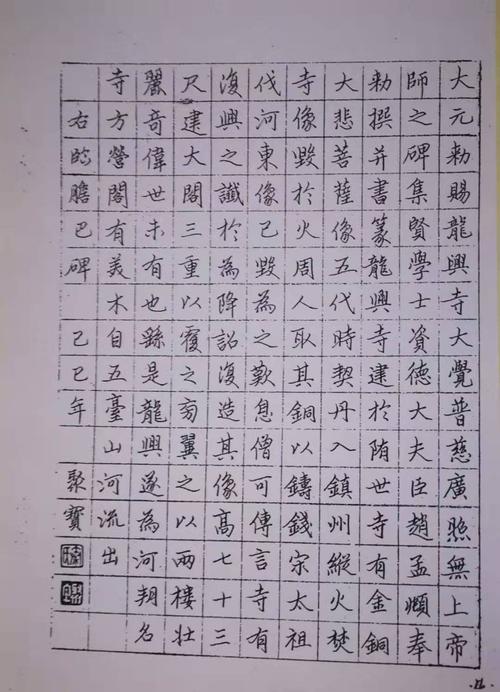 大元勅賜龍興寺大覺普慈廣照無上帝
師之碑集賢學士資德大夫臣趙孟頫奉
勅撰并書篆龍興寺建於陏世寺有金銅
大悲菩薩像五代時契丹入鎮州縱火焚
寺像毀於火周人取其銅以鑄錢宋太祖
伐河東像已毀為之歎息僧可傳言寺有
復興之讖於為降詔復造其像高七十三
尺建大閣三重以覆之旁翼之以兩樓壯
麗奇偉世未有也繇是龍興遂為河朔名
寺方營閣有美木自五臺山河流出
右臨膽巴碑 己巳年 聚寶